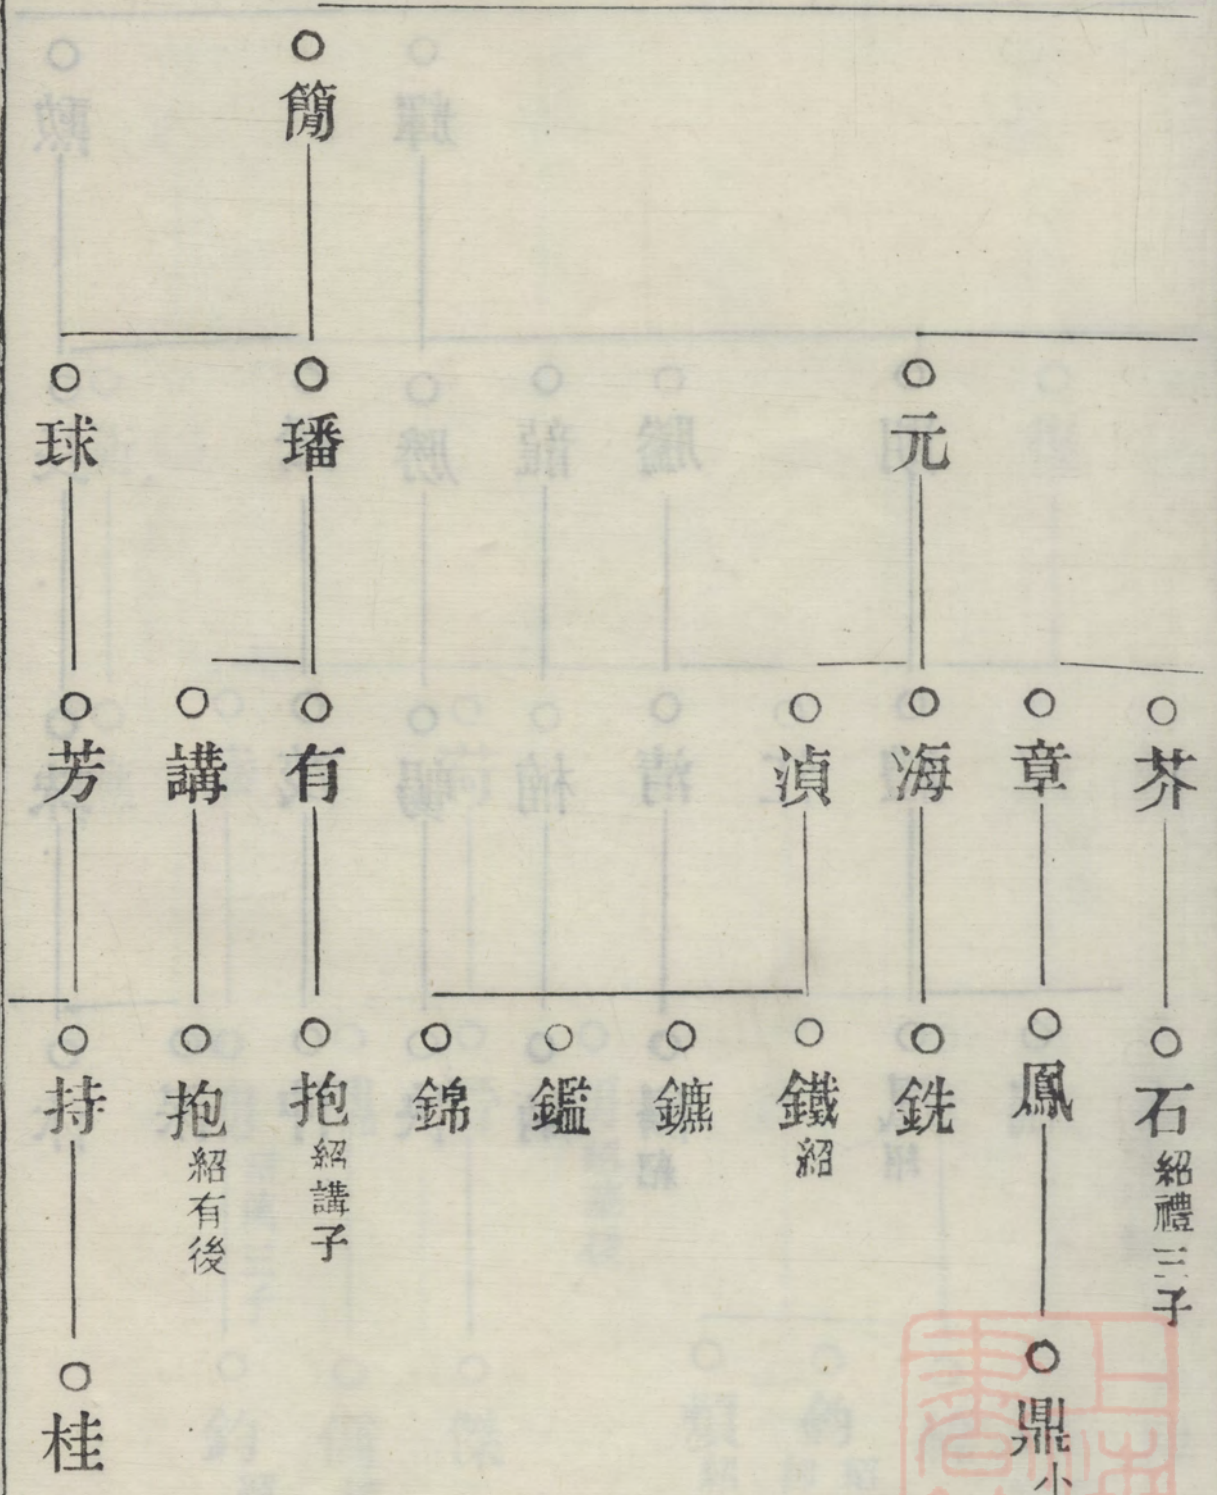 簡
元
璠
球
芥
章
海
湞
有
講
芳
石 紹禮三子
鳳
銑
鐵 紹
鑣
鑑
錦
抱 紹講子
抱 紹有後
持
鼎 小
桂